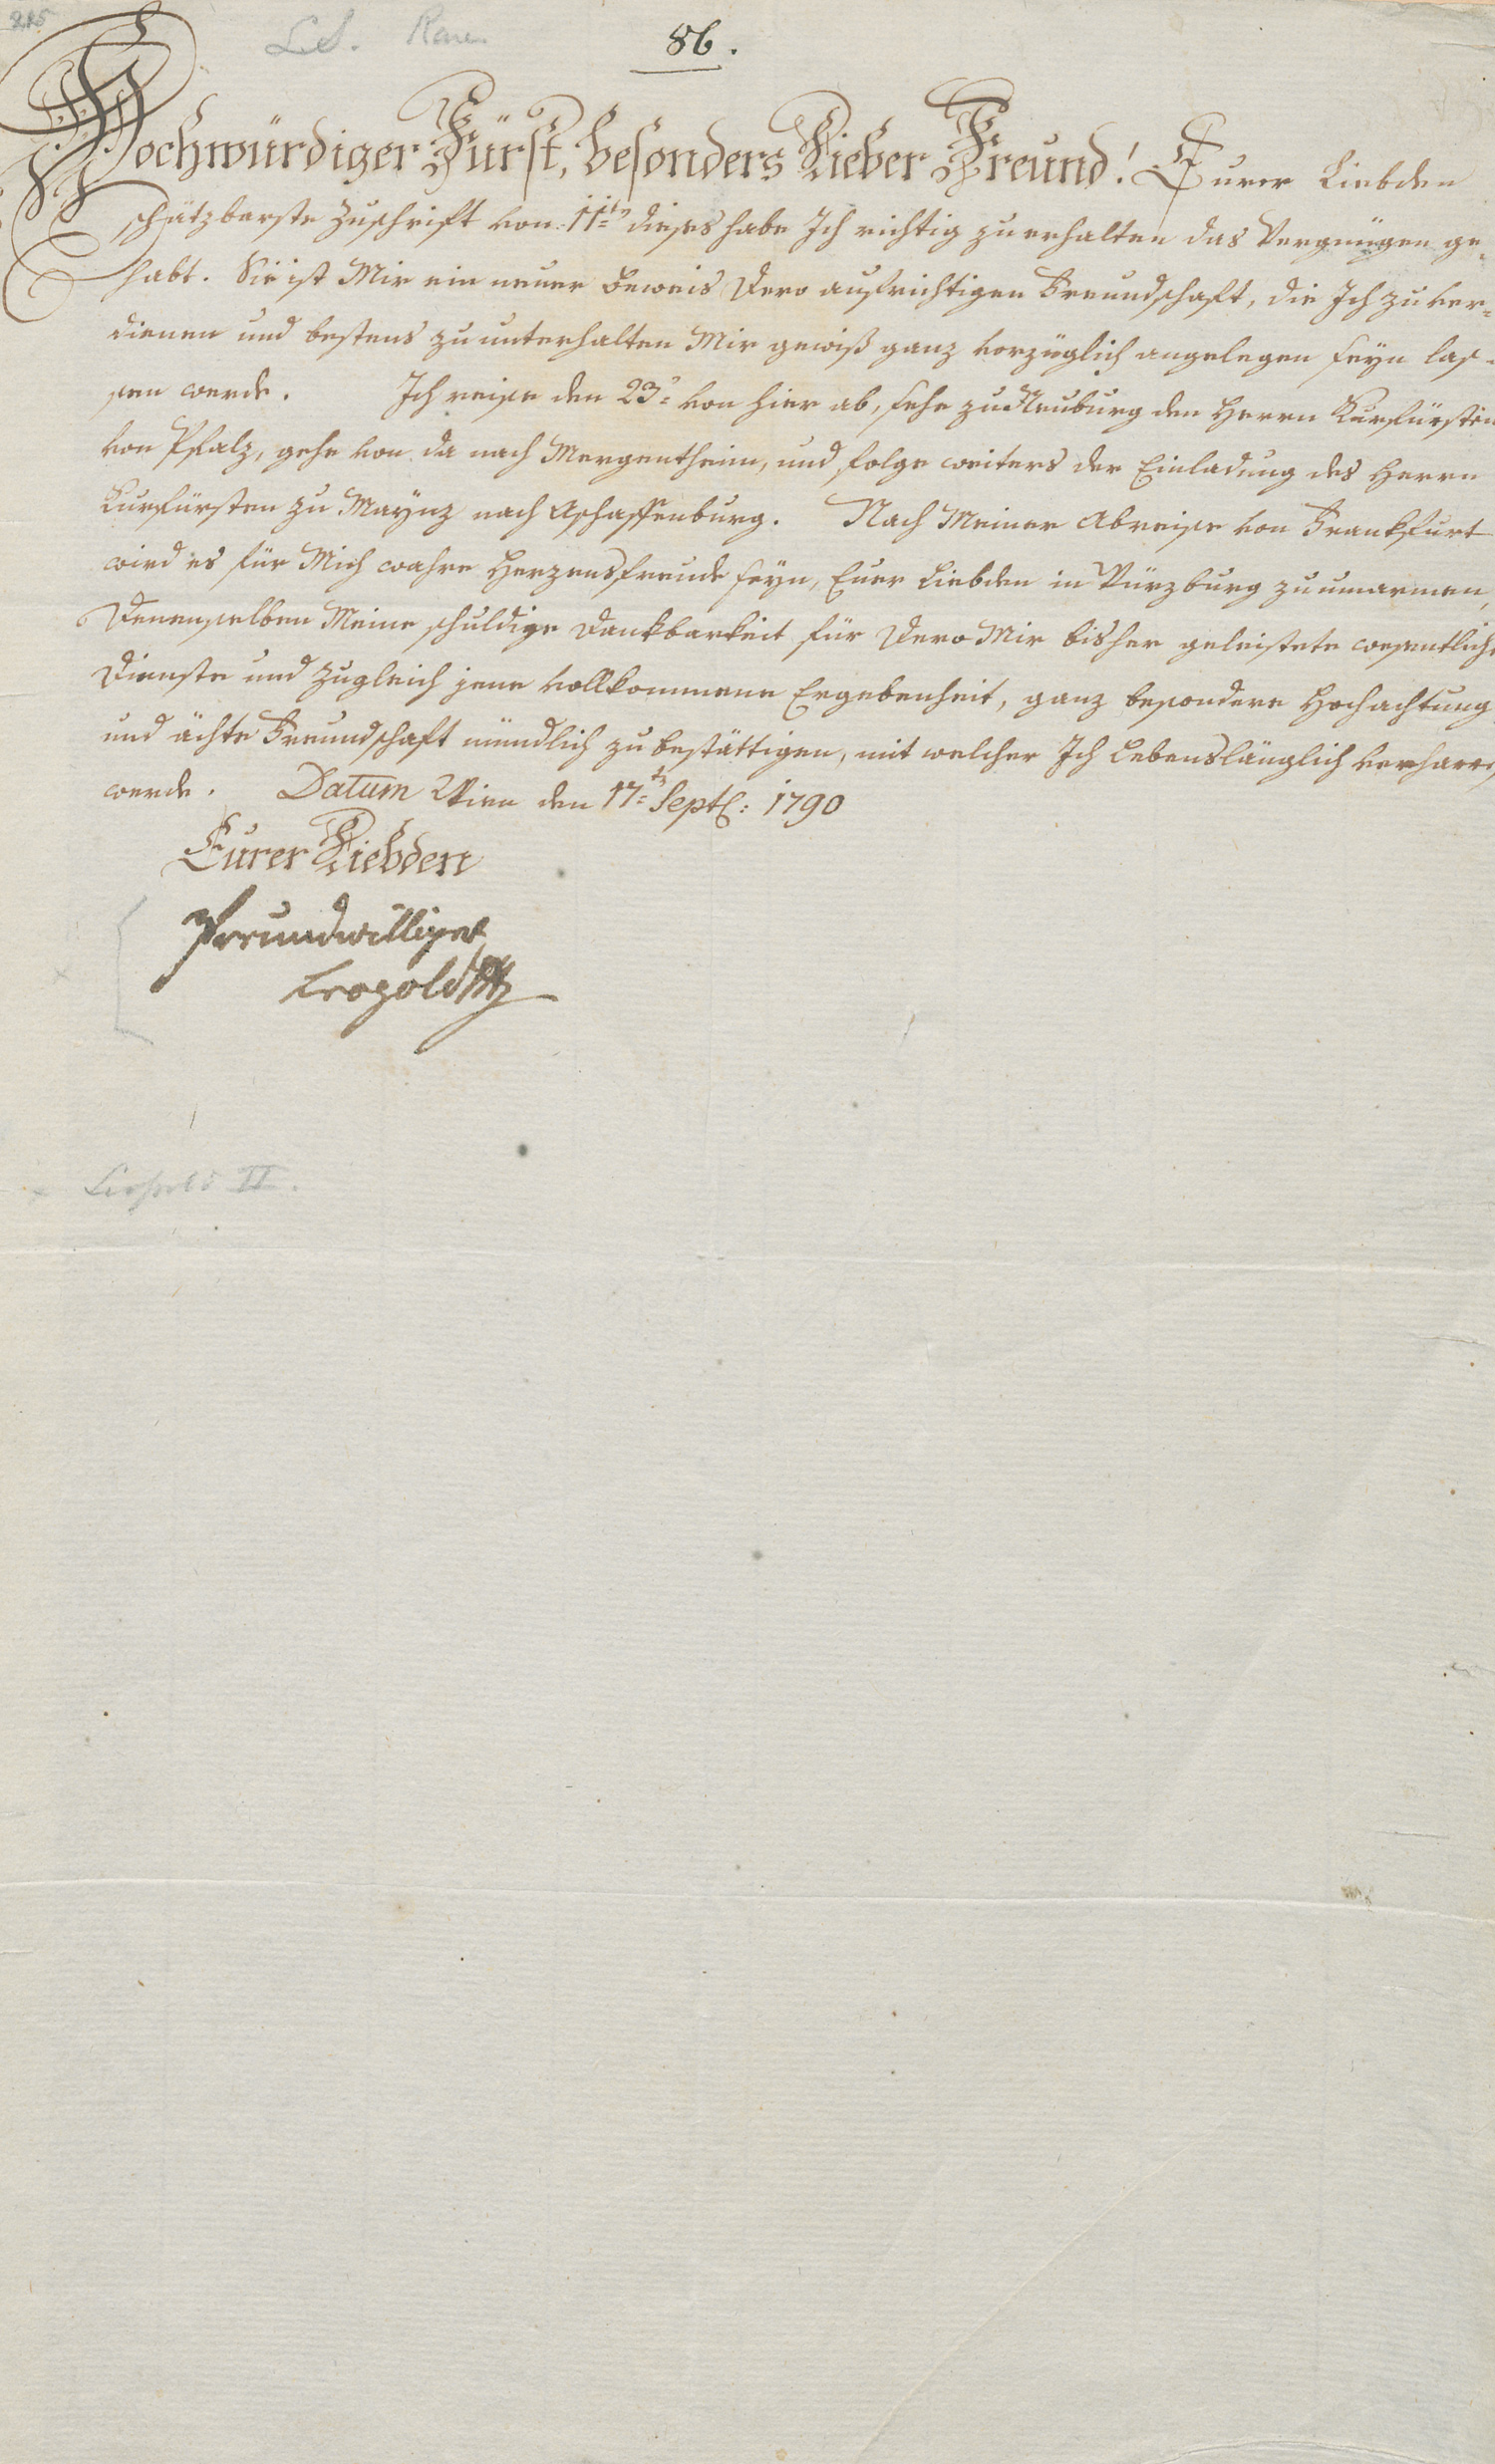 215
LS.
86.
Hochwürdiger Fürst, besonders Lieber Freund! Eurer Liebden
schätzbarste Zuschrift von 11ts dieses habe Ich richtig zu erhalten das Vergnügen ge-
habt. Sie ist Mir ein neuer Beweis Dero aufrichtigen Freundschaft, die Ich zu ver-
dienen und bestens zu unterhalten Mir gewiß ganz vorzüglich angelegen seyn las-
sen werde. Ich reise den 23t von hier ab, sehe zu Neuburg den Herrn Kurfürsten
von Pfalz, gehe von da nach Mergentheim, und folge weiters der Einladung des Herrn
Kurfürsten zu Maynz nach Aschaffenburg. Nach Meiner Abreise von Frankfurt
wird es für Mich wahre Herzensfreude seyn, Euer Liebden in Würzburg zu umarmen,
Denenselben Meine schuldige Dankbarkeit für Dero Mir bisher geleistete wesentliche
Dienste und zugleich jene vollkommene Ergebenheit, ganz besondere Hochachtung
und ächte Freundschaft mündlich zu bestättigen, mit welcher Ich Lebenslänglich verharren
werde. Datum Wien den 17ts Sept: 1790
Eurer Liebden
Freundwilliger
Leopold
Leopold II.